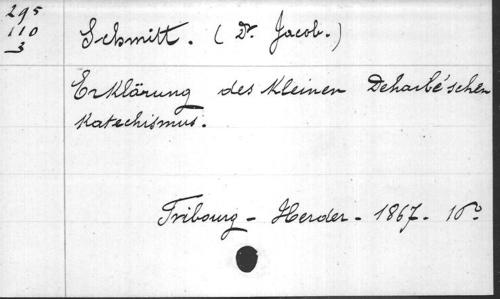 295
110
3
Schmitt. (Dr. Jacob.)
Erklärung des kleinen Deharbe'schen
Katechismus.
Fribourg - Herder - 1867. 16º